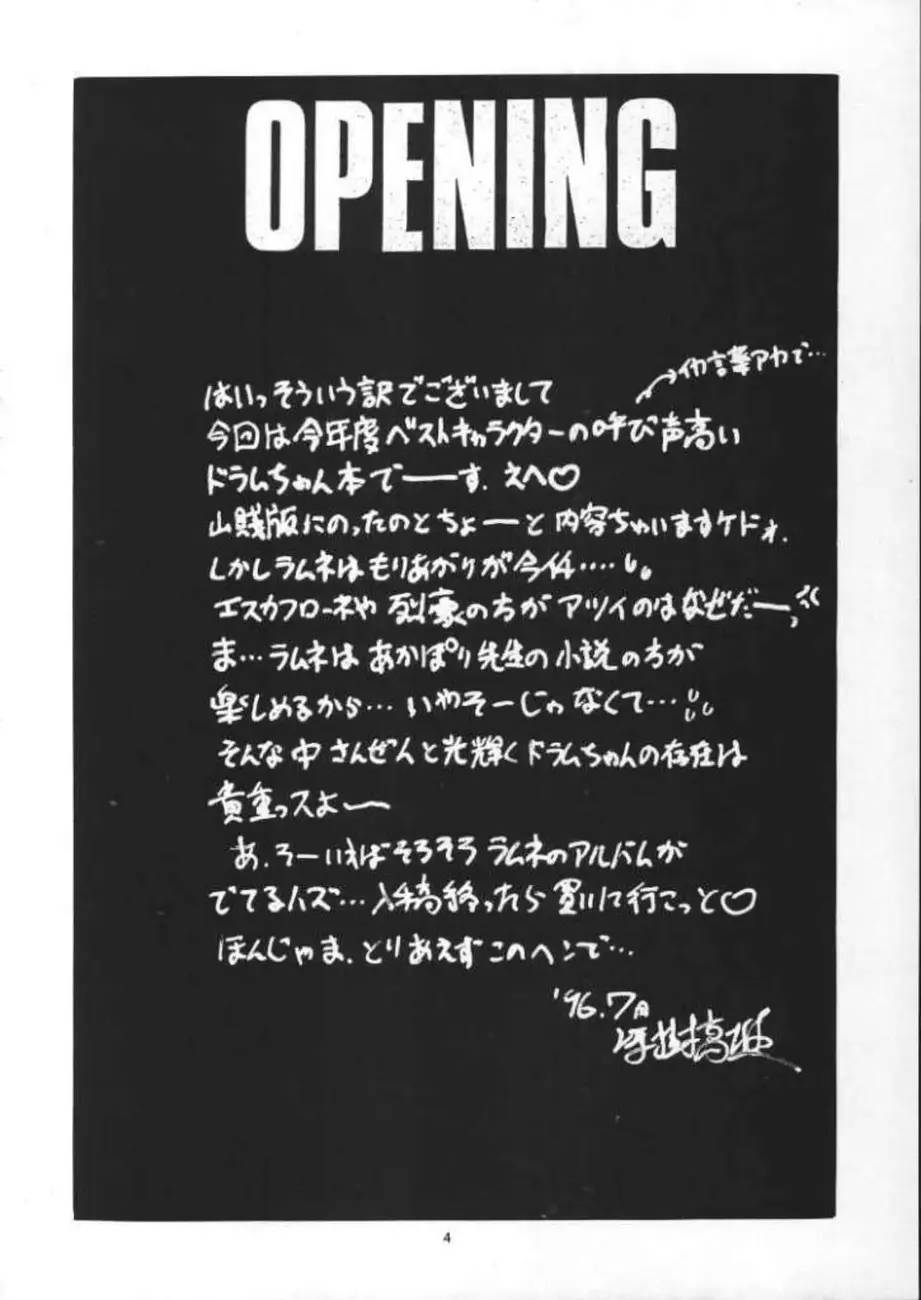 OPENING
はいっそういう訳でございまして
今回は今年度ベストキャラクターの呼び声高い
ドラムちゃん本でーーす.えへ♡
山賊版にのったのとちょーーと内容ちゃいますケドォ.
しかしラムネはもりあがりが今イ….
エスカフローネや烈豪の方がアツイのはなぜだー
ま…ラムネはあかほり先生の小説の方が
楽しめるから…いやそーじゃなくて…
そんな中さんぜんと光輝くドラムちゃんの存在は
貴重っスよー
あ.そーいえばそろそろラムネのアルバムが
でてるハズ…入稿終ったら買いに行こっと♡
ほんじゃま.とりあえずこのヘンで…
'96.7月
4